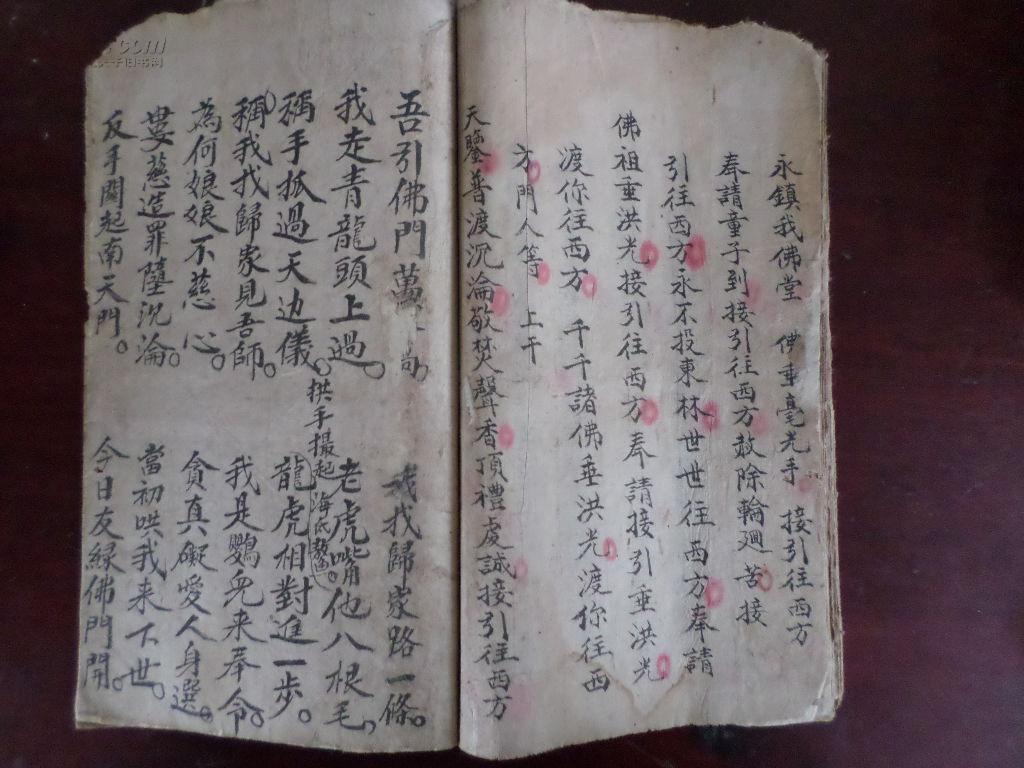 永鎮我佛堂 佛垂毫光手 接引往西方
奉請童子到接引往西方敕除輪廻苦接
引往西方永不投東林世世往西方奉請
佛祖垂洪光接引往西方奉請接引垂洪光
渡你往西方 千千諸佛垂洪光渡你往西
方門人等 上干
天鑒普渡沉淪敬焚聲香頂禮虔誠接引往西方
吾引佛門萬 尚。 我找歸家路一條。
我走青龍頭上過。 老虎啃他八根毛，
拱手撮起海底 。
稱手抓過天边儀。 龍虎相對進一步。
稱我找歸家見吾師。 我是鸚兒来奉令。
為何娘娘不慈心。 貪真礙愛人身選。
婁慈造罪墮沉淪。 當初哄我来下世。
反手関起南天門。 今日友緣佛門開。